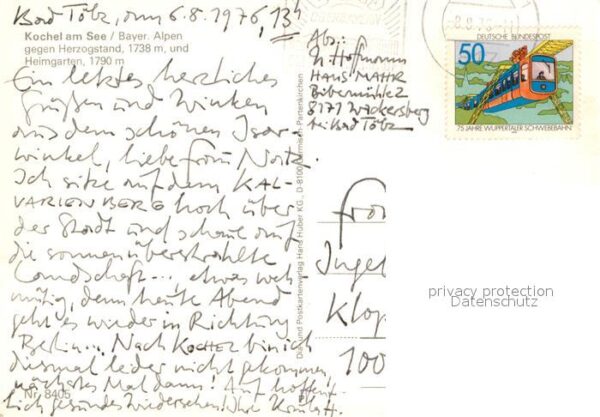 Bad Tölz, am 6.8.1976, 13h
Kochel am See / Bayer. Alpen
gegen Herzogstand, 1738 m, und
Heimgarten, 1790 m
Ein letztes herzliches
Grüßen und Winken
aus dem schönen Isar-
winkel, liebe Frau Noitz.
Ich sitze auf dem KAL-
VARIENBERG hoch über
der Stadt und schaue auf
die sonnenüberstrahlte
Landschaft... etwas weh-
mütig, denn heute Abend
geht es wieder in Richtung
Berlin... Nach KOCHEL bin ich
diesmal leider nicht gekommen,
nächstes Mal dann! Auf hoffent-
lich gesundes Wiedersehen! Ihr
Nr. 8405
Hans Huber KG., D-8100 Garmisch-Partenkirchen
Abs.:
Hoffmann
HANS MAHR
Bibermühle 2
8171 Wackersberg
bei Bad Tölz
8.8.76
50
DEUTSCHE BUNDESPOST
75 JAHRE WUPPERTALER SCHWEBEBAHN
Inge
Klop
100
privacy protection
Datenschutz